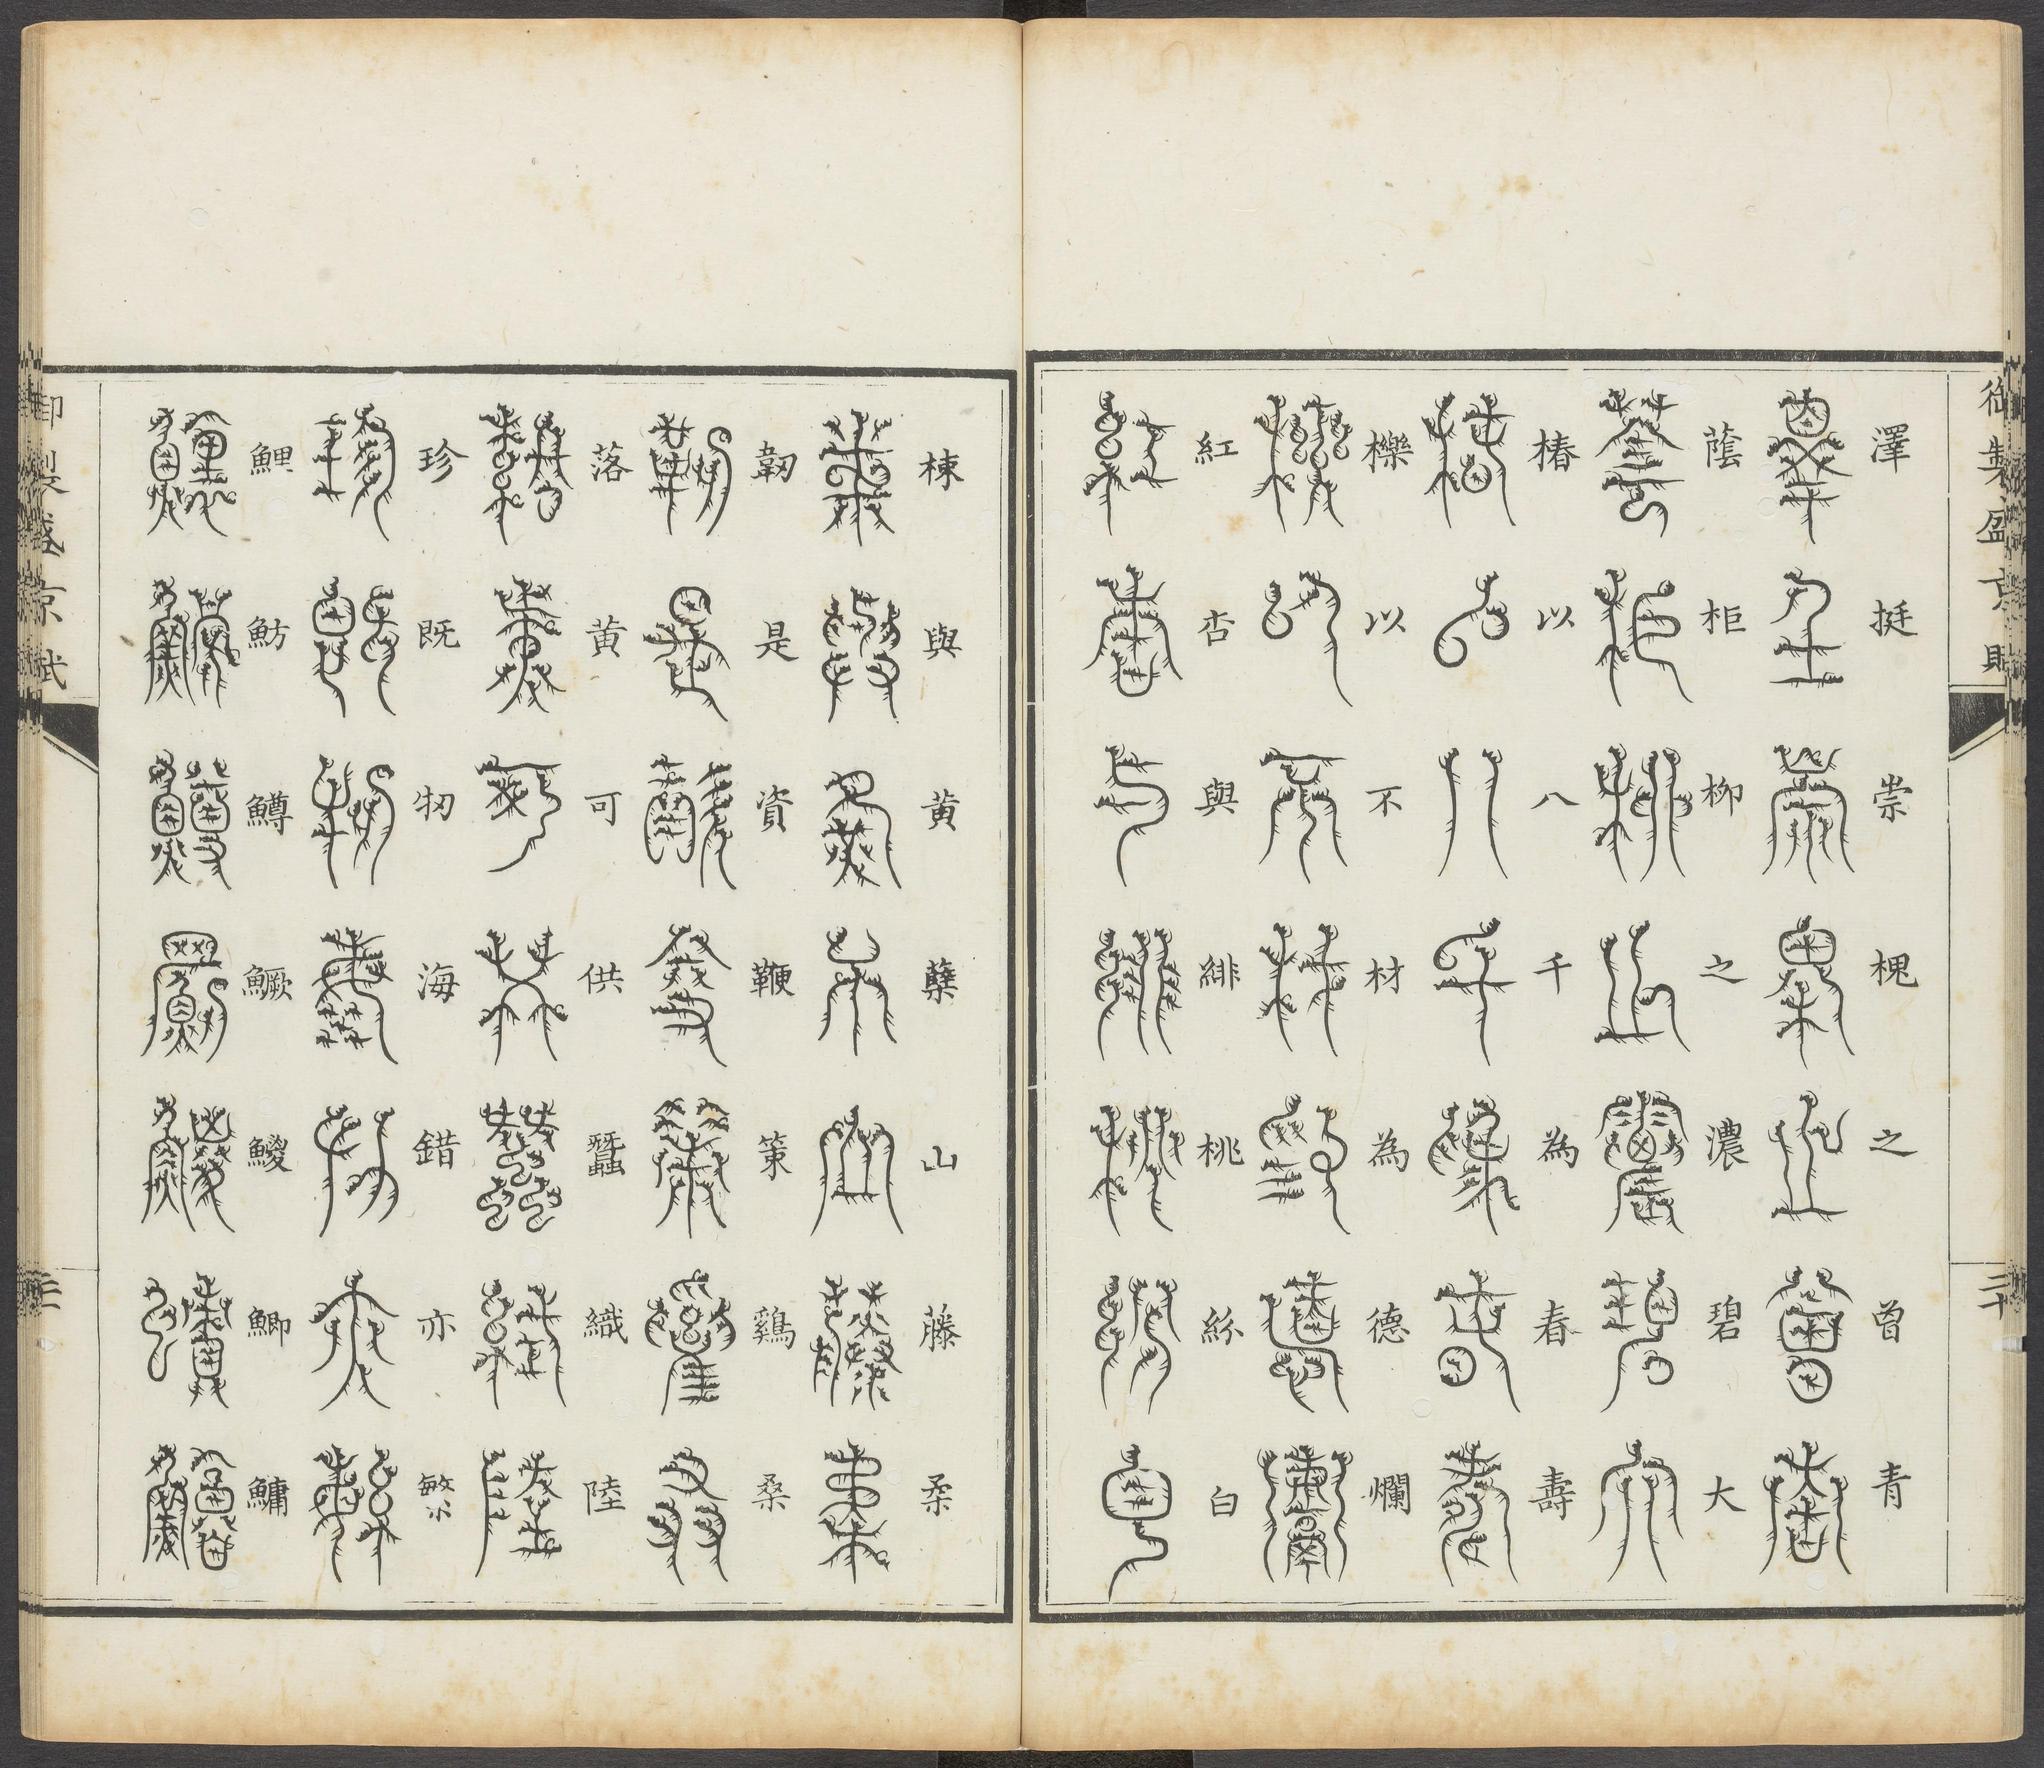 御製盛京賦
三十
澤挺崇槐之曾青
蔭柜柳之濃碧大
椿以八千為春壽
櫟以不材為德爛
紅杏與緋桃紛白
楝與黄蘗山藤柔
韌是資鞭策鷄桑
落黄可供蠶織陸
珍既牣海錯亦
鯉魴鱒鱖鯼鯽鱅